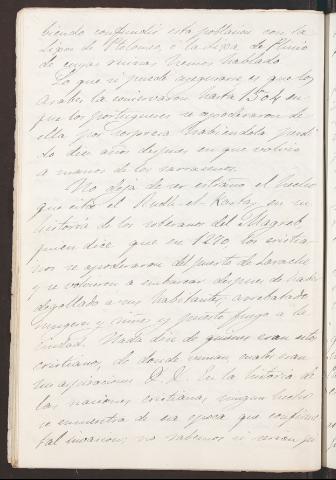 biendo confundir esta poblacion con la
Lixos de Ptolomeo, o la Lixa de Plinio
de cuyas ruinas hemos hablado.
Lo que si puede asegurarse es que los
arabes la conservaron hasta 1504 en
que los portugueses se apoderaron de
ella por sorpresa habiendola perdi
do diez años despues en que volvio
a manos de los sarracenos.
No deja de ser estraño el hecho
que cita el Rudh el Kartas, en su
historia de los soberanos del Magreb
pues dice que en 1270, los cristia
nos se apoderaron del puerto de Larache
y se volvieron a embarcar despues de haber
degollado a sus habitantes, arrebatado
mugeres y niños y puesto fuego a la
ciudad. Nada dice de quienes eran estos
cristianos, de donde venian, cuales eran
sus aspiraciones &. &. En la historia de
las naciones cristianas ningun hecho
se encuentra de esa epoca que confirme
tal invasion, no sabemos si seran